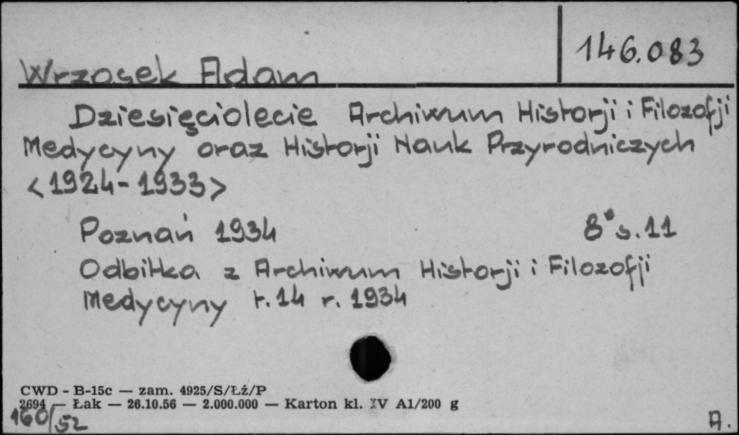 146.083
Wrzosek Adam
Dziesięciolecie Archiwum Historji i Filozofji
Medycyny oraz Historji Nauk Przyrodniczych
<1924-1933>
Poznań 1934 8° s. 11
Odbitka z Archiwum Historji i Filozofji
Medycyny t. 14 r. 1934
CWD - B-15c — zam. 4925/S/Łż/P
2694 — Łak — 26.10.56 — 2.000.000 — Karton kl. IV A1/200 g
160/52
A.